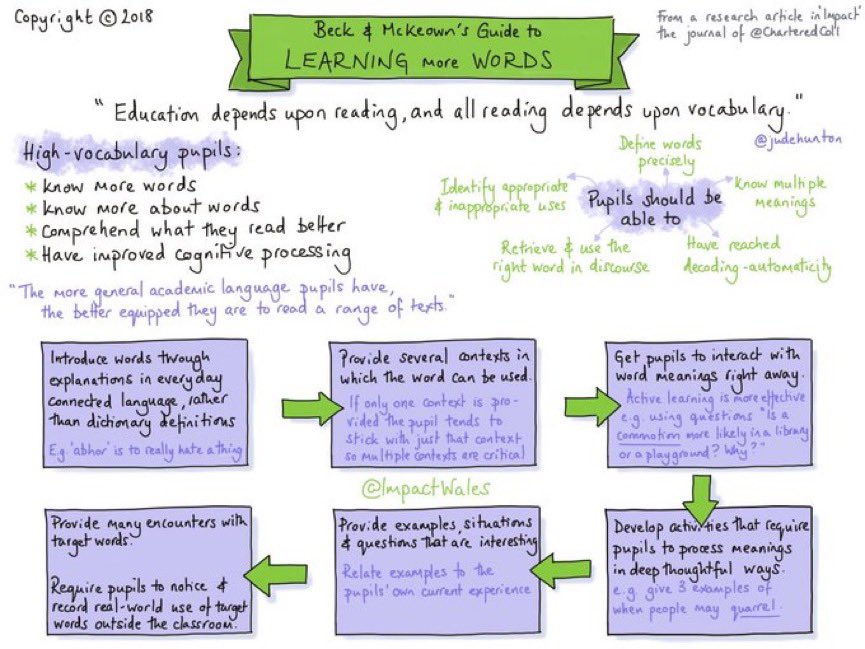 Copyright © 2018
Beck & McKeown's Guide to
LEARNING more WORDS
From a research article in 'Impact'
the journal of @CharteredColl
"Education depends upon reading, and all reading depends upon vocabulary."
@judehunton
High-vocabulary pupils:
* Know more words
* Know more about words
* Comprehend what they read better
* Have improved cognitive processing
"The more general academic language pupils have,
the better equipped they are to read a range of texts."
Pupils should be
able to
Define words
precisely
Know multiple
meanings
Have reached
decoding-automaticity
Retrieve & use the
right word in discourse
Identify appropriate
& inappropriate uses
Introduce words through
explanations in everyday
connected language, rather
than dictionary definitions
E.g. 'abhor' is to really hate a thing
Provide several contexts in
which the word can be used.
If only one context is pro-
vided the pupil tends to
stick with just that context
so multiple contexts are critical
Get pupils to interact with
word meanings right away.
Active learning is more effective
e.g. using questions "Is a
commotion more likely in a library
or a playground? Why?"
@ImpactWales
Develop activities that require
pupils to process meanings
in deep thoughtful ways.
e.g. give 3 examples of
when people may quarrel.
Provide examples, situations
& questions that are interesting
Relate examples to the
pupils' own current experience
Provide many encounters with
target words.
Require pupils to notice &
record real-world use of target
words outside the classroom.